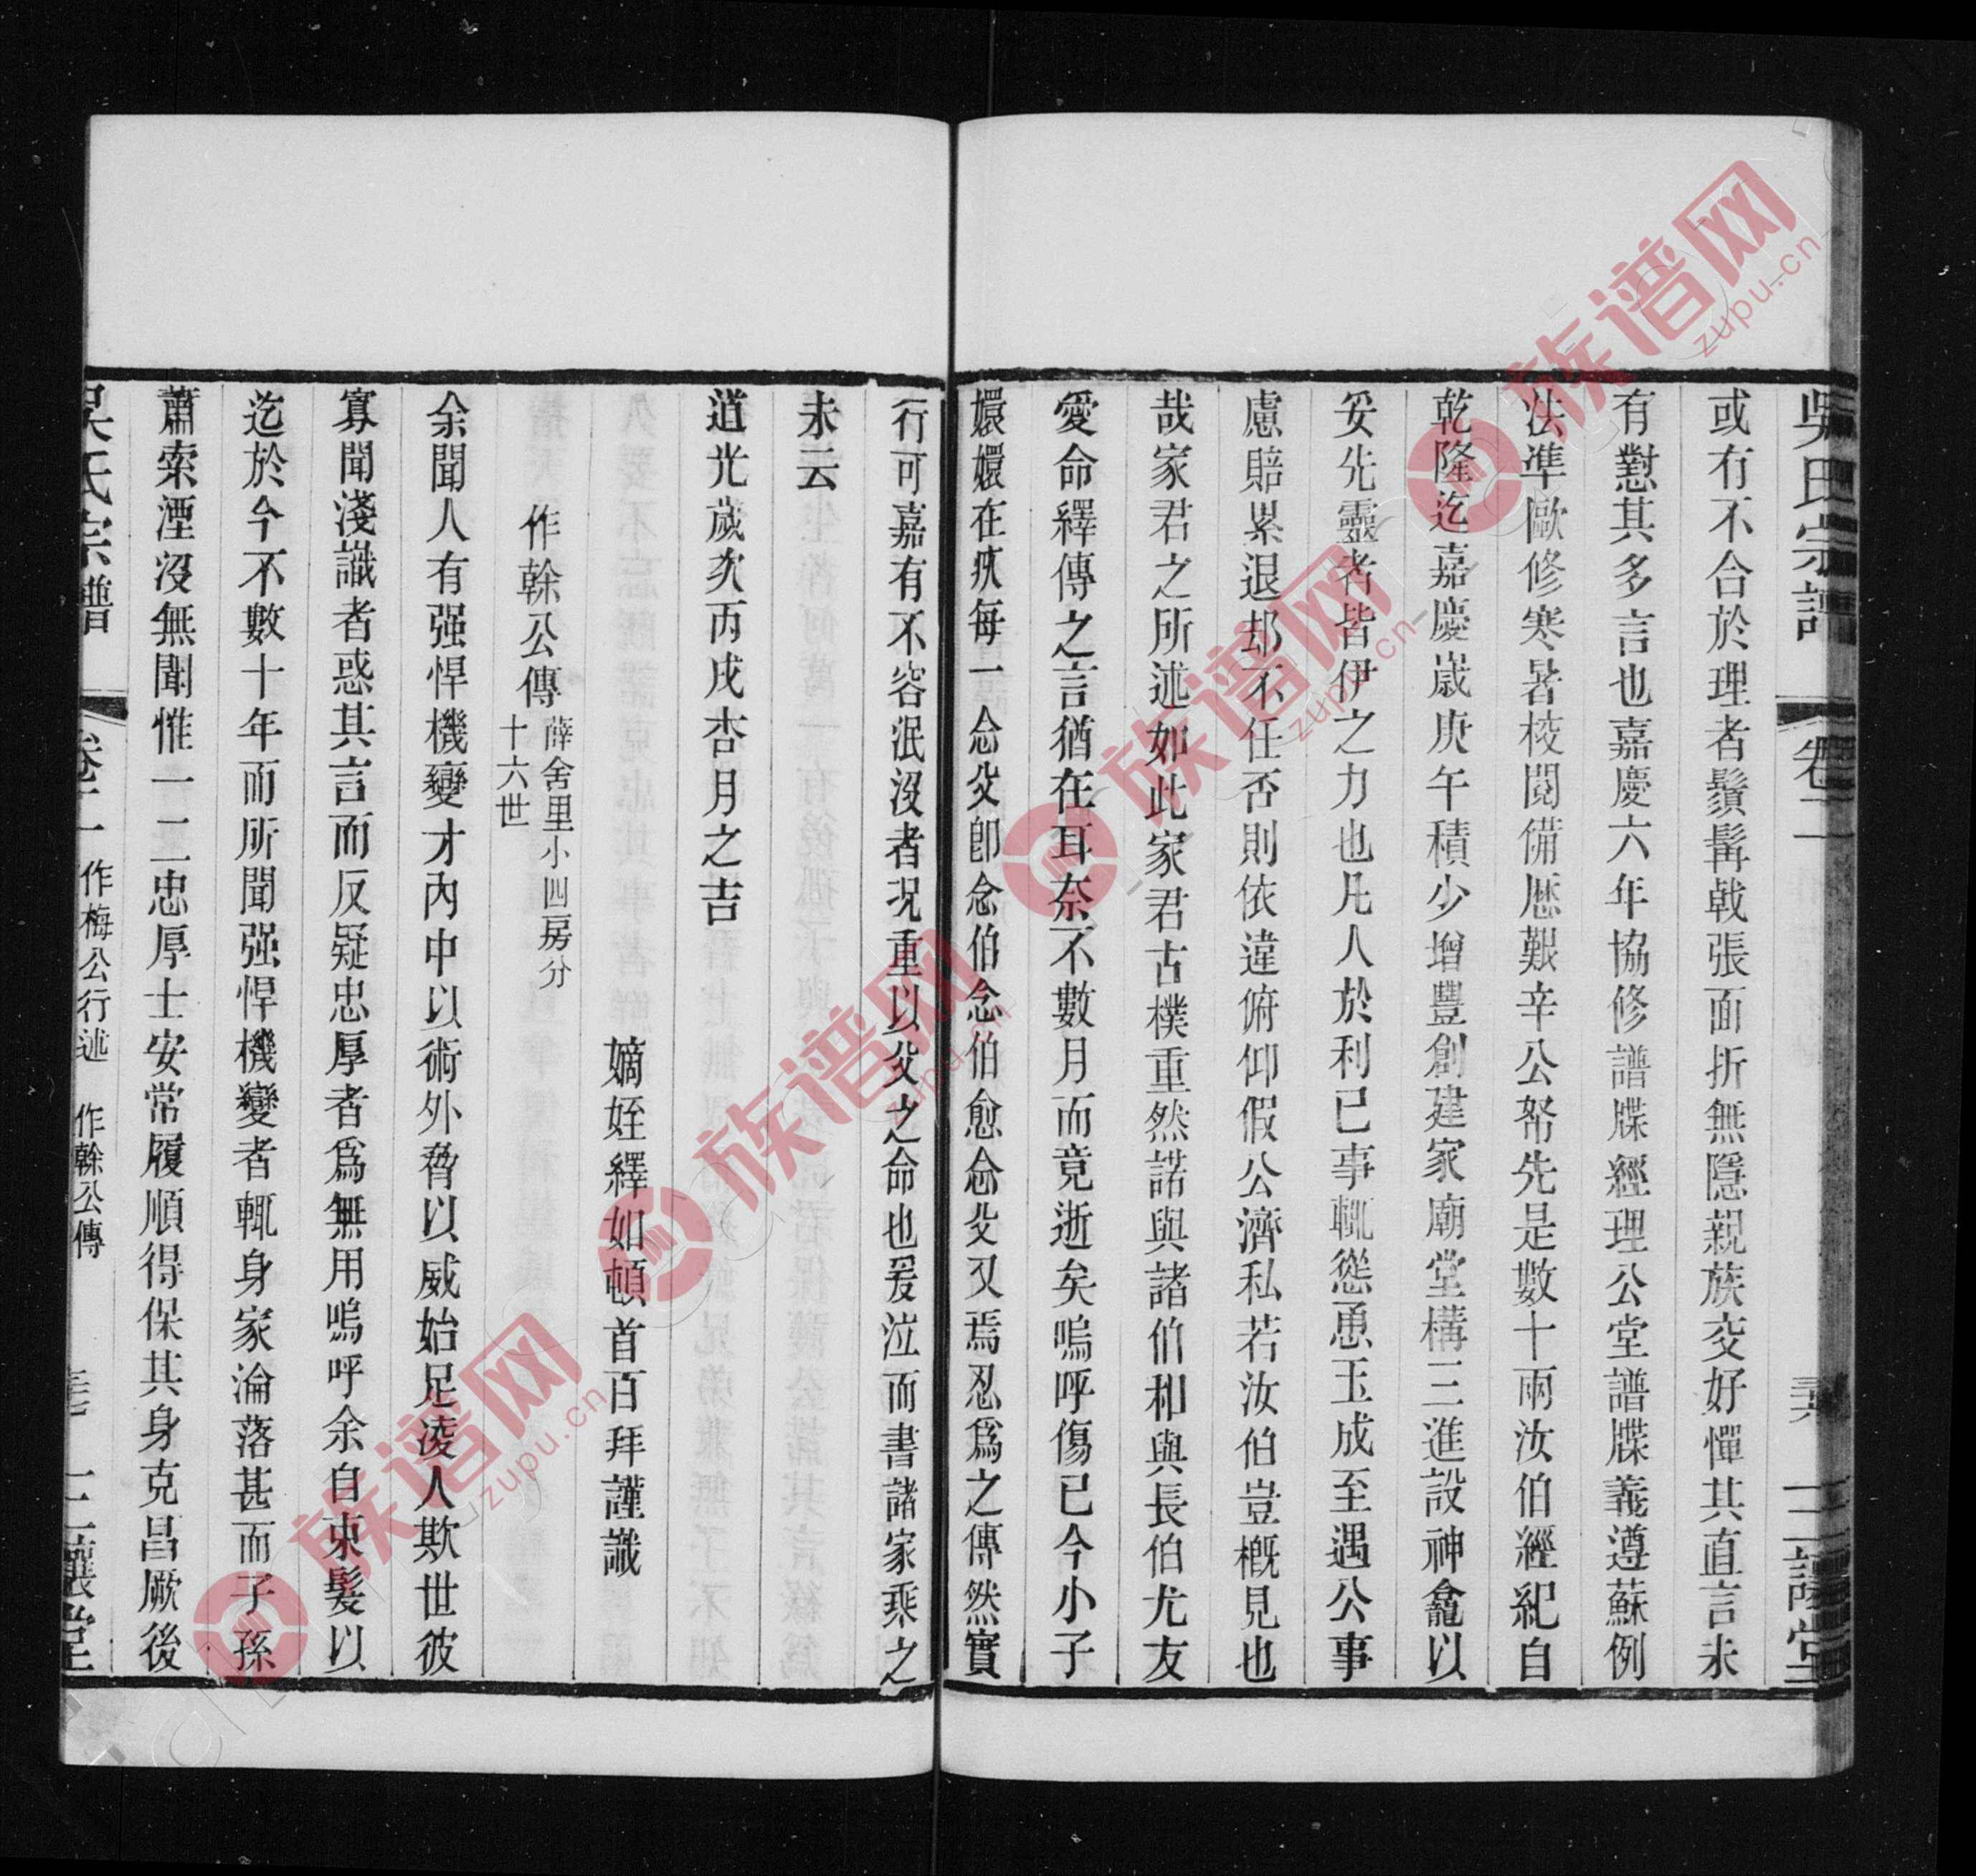 吳氏宗譜
卷二
三讓堂
或有不合於理者鬚髯戟張面折無隱親族交好憚其直言未
有懟其多言也嘉慶六年協修譜牒經理公堂譜牒義遵蘇例
法準歐修寒暑校閱備歷艱辛公帑先是數十兩汝伯經紀自
乾隆迄嘉慶歲庚午積少增豐創建家廟堂構三進設神龕以
妥先靈者皆伊之力也凡人於利已事輒慫恿玉成至遇公事
慮賠累退却不任否則依違俯仰假公濟私若汝伯豈槪見也
哉家君之所述如此家君古樸重然諾與諸伯和與長伯尤友
愛命繹傳之言猶在耳奈不數月而竟逝矣嗚呼傷已今小子
嬛嬛在疚每一念父卽念伯念伯愈念父又焉忍爲之傳然實
行可嘉有不容泯沒者况重以父之命也爰泣而書諸家乘之
未云
道光歲次丙戌杏月之吉
嫡姪繹如頓首百拜謹識
作榦公傳 薛舍里小四房分十六世
余聞人有强悍機變才內中以術外脅以威始足凌人欺世彼
寡聞淺識者惑其言而反疑忠厚者爲無用嗚呼余自束髮以
迄於今不數十年而所聞强悍機變者輒身家淪落甚而子孫
蕭索湮沒無聞惟一二忠厚士安常履順得保其身克昌厥後
吳氏宗譜
卷二
作梅公行述
作榦公傳
三讓堂
zupu.cn
族谱网
zupu.cn
族谱网
zupu.cn
族谱网
zupu.cn
族谱网